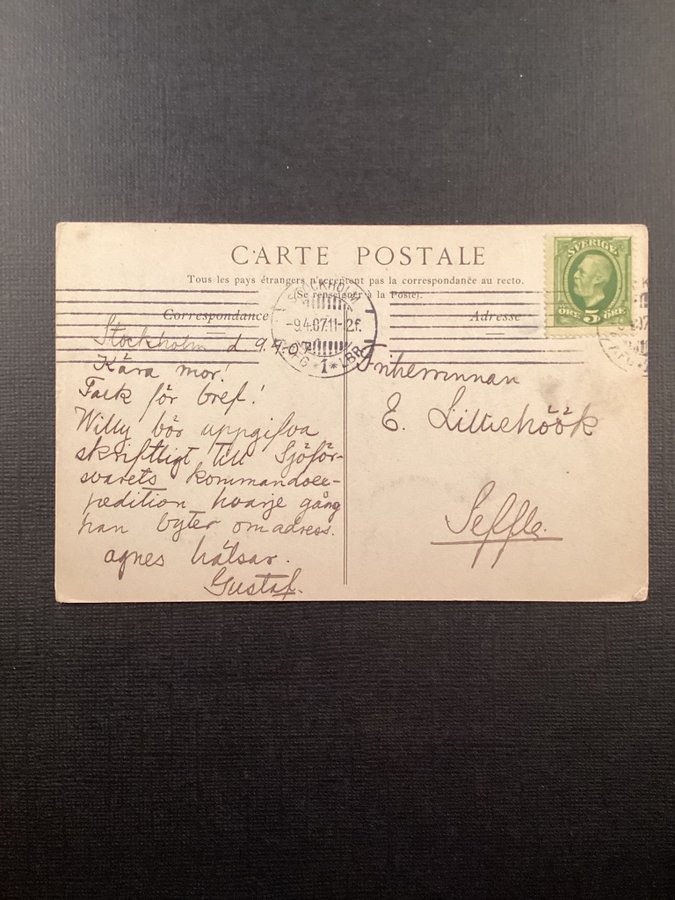 CARTE POSTALE
Tous les pays étrangers n'acceptent pas la correspondance au recto.
(Se renseigner à la Poste).
Correspondance
Adresse
SVERIGE
ÖRE 5 ÖRE
STOCKHOLM
-9.4.07.11-12f.
1
LBR
Stockholm d. 9.4.07
Kära mor!
Tack för bref!
Willy bör uppgifva
skriftligt till Sjöför-
svarets kommandoex-
pedition hvarje gång
han byter om adress.
Agnes hälsar.
Gustaf.
Friherrinnan
E. Lilliehöök
Seffle.